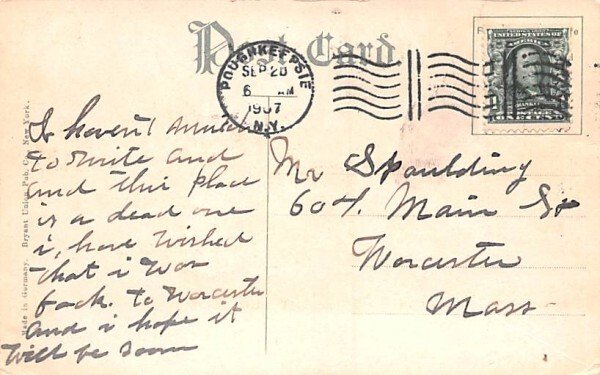 Post Card
POUGHKEEPSIE
SEP 20
6 AM
1907
N.Y.
UNITED STATES OF
Made in Germany. Bryant Union Pub. Co. New York.
I haven't much
to write and
and this place
is a dead one
i, have wished
that i wor
back. to Worcester
and i hope it
will be soon
Mr Spaulding
604. Main St
Worcester
Mass.